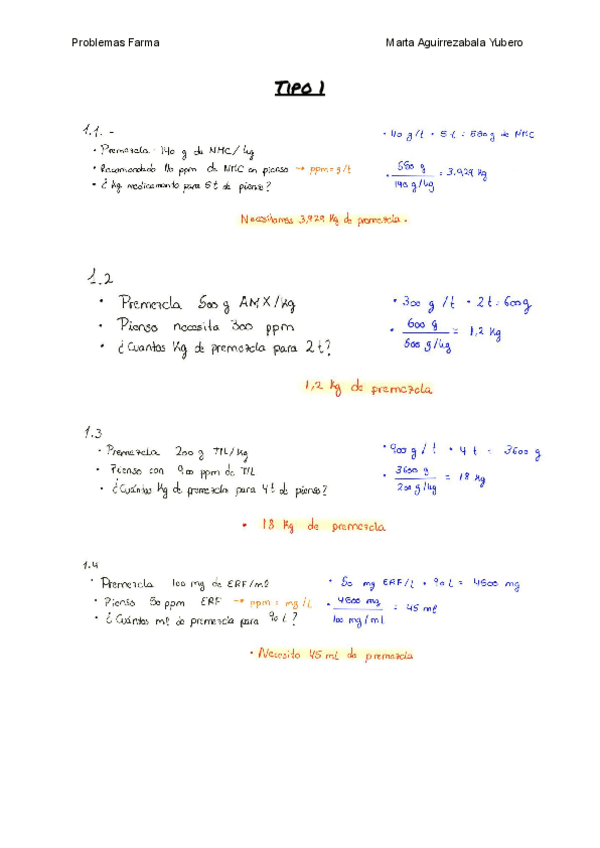 Problemas Farma Marta Aguirrezabala Yubero
TIPO 1
1.1. -
• Premezcla 140 g de NMC/kg
• Recomendado 110 ppm de NMC en pienso → ppm=g/t
• ¿Kg medicamento para 5t de pienso?
• 110 g/t • 5 t = 550 g de NMC
• 550 g / 140 g/kg = 3.929 kg
Necesitamos 3,929 Kg de premezcla.
1.2
• Premezcla 500 g AMX/kg
• Pienso necesita 300 ppm
• ¿Cuantos Kg de premezcla para 2 t?
• 300 g /t • 2 t = 600g
• 600 g / 500 g/kg = 1,2 kg
1,2 Kg de premezcla
1.3
• Premezcla 200 g TIL/kg
• Pienso con 900 ppm de TIL
• ¿Cuántos Kg de premezcla para 4t de pienso?
• 900 g / t • 4 t = 3600 g
• 3600 g / 200 g/kg = 18 Kg
• 18 Kg de premezcla
1.4
• Premezcla 100 mg de ERF/ml
• Pienso 50 ppm ERF → ppm = mg/L
• ¿Cuántos ml de premezcla para 90 L?
• 50 mg ERF/L • 90 L = 4500 mg
• 4500 mg / 100 mg/ml = 45 ml
• Necesito 45 ml de premezcla